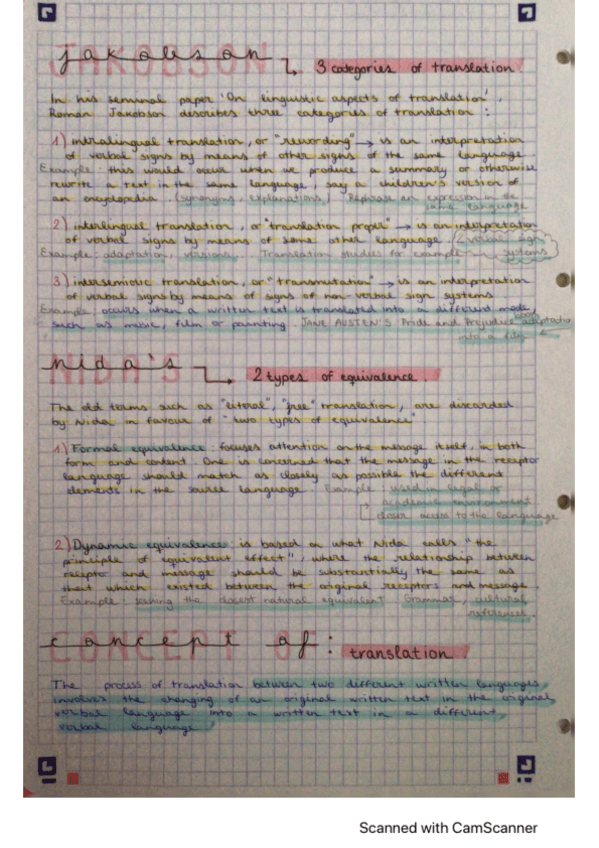 JAKOBSON
jakobson → 3 categories of translation.
In his seminal paper 'On linguistic aspects of translation',
Roman Jakobson describes three categories of translation:
1) intralingual translation, or "rewording" → is an interpretation
of verbal signs by means of other signs of the same language.
Example: this would occur when we produce a summary or otherwise
rewrite a text in the same language, say a children's version of
an encyclopedia. (synonyms, explanations,) Rephrase an expression in the
same language
2) interlingual translation, or "translation proper" → is an interpretation
of verbal signs by means of some other language. 2 verbal sign
Example: adaptation, versions. Translation studies for example systems
3) intersemiotic translation, or "transmutation" → is an interpretation
of verbal signs by means of signs of non-verbal sign systems
Example: occurs when a written text is translated into a different mode,
such as music, film or painting. JANE AUSTEN'S Pride and Prejudice book adaptatio
into a film
NIDA'S
nida's → 2 types of equivalence.
The old terms such as "literal", "free" translation, are discarded
by Nida in favour of "two types of equivalence"
1) Formal equivalence: focuses attention on the message itself, in both
form and content. One is concerned that the message in the receptor
language should match as closely as possible the different
elements in the source language. Example: used in legal or
academic environment
closer access to the language
2) Dynamic equivalence is based on what Nida calls "the
principle of equivalent effect", where the relationship between
receptor and message should be substantially the same as
that which existed between the original receptors and message.
Example: seeking the closest natural equivalent. Grammar, cultural
references.
CONCEPT OF
concept of: translation.
The process of translation between two different written languages
involves the changing of an original written text in the original
verbal language into a written text in a different
verbal language
Scanned with CamScanner